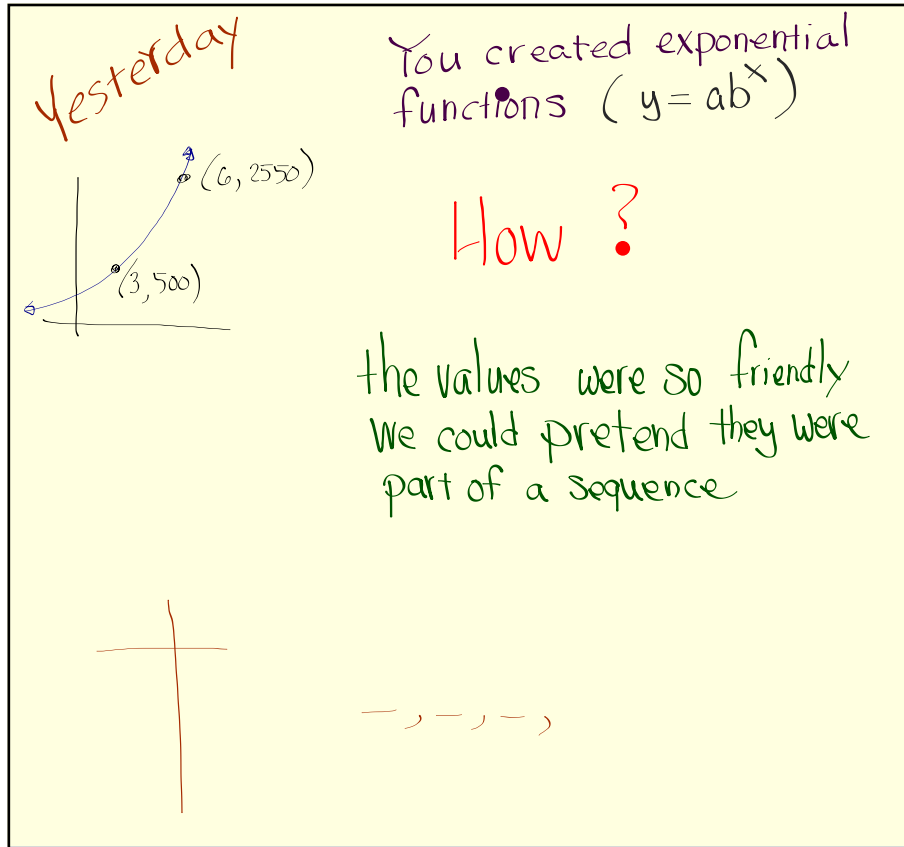 Yesterday
You created exponential
functions ( y = abˣ )
(6, 2550)
(3, 500)
How ?
the values were so friendly
we could pretend they were
part of a sequence
— , — , — ,